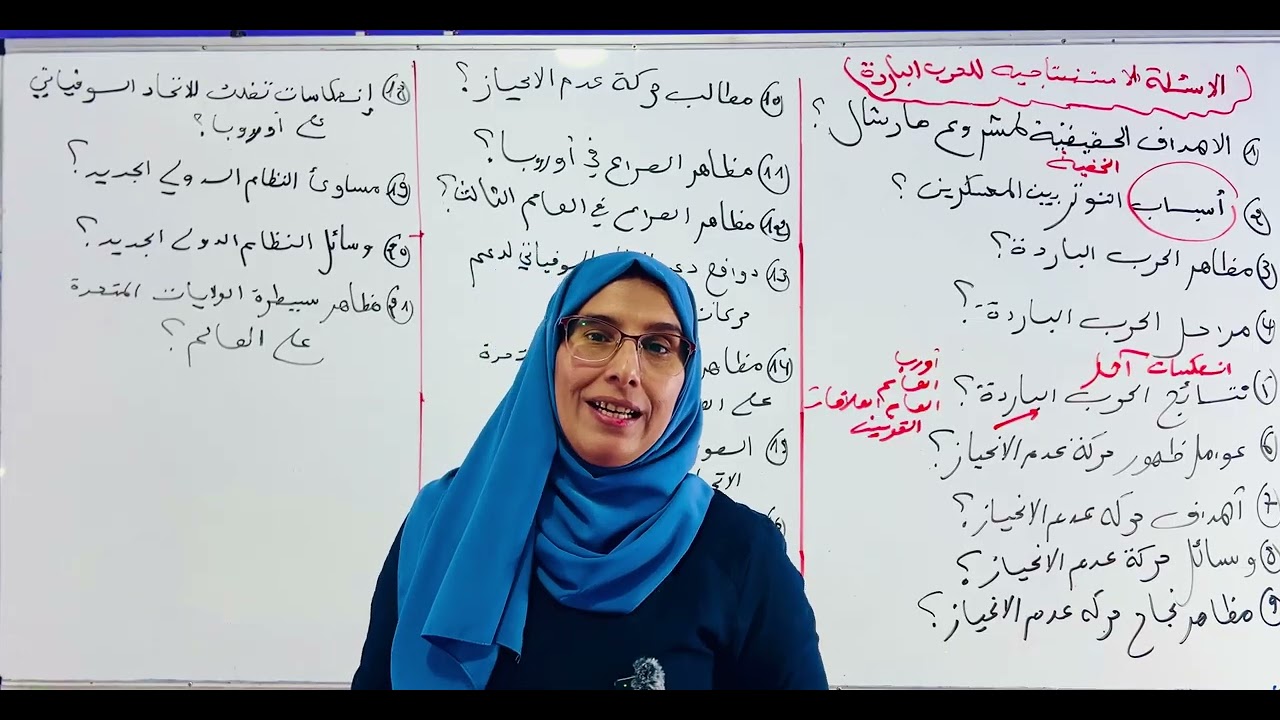 الاسئلة الاستنتاجية للحرب الباردة
1) الاهداف الحقيقية لمشروع مارشال؟
الخفية
2) أسباب التوتر بين المعسكرين؟
3) مظاهر الحرب الباردة؟
4) مراحل الحرب الباردة؟
انعكاسات
5) نتائج الحرب الباردة؟
أوربا
العالم
العلاقات
6) عوامل ظهور حركة عدم الانحياز؟
7) أهداف حركة عدم الانحياز؟
8) وسائل حركة عدم الانحياز؟
9) مظاهر نجاح حركة عدم الانحياز؟
10) مطالب حركة عدم الانحياز؟
11) مظاهر الصراع في أوروبا؟
12) مظاهر الصراع في العالم الثالث؟
13) دوافع السوفياتي لدعم
حركات
14) مظاهر
على
18) إنعكاسات تفكك الاتحاد السوفياتي
على أوروبا؟
19) مساوئ النظام الدولي الجديد؟
20) وسائل النظام الدولي الجديد؟
21) مظاهر سيطرة الولايات المتحدة
على العالم؟